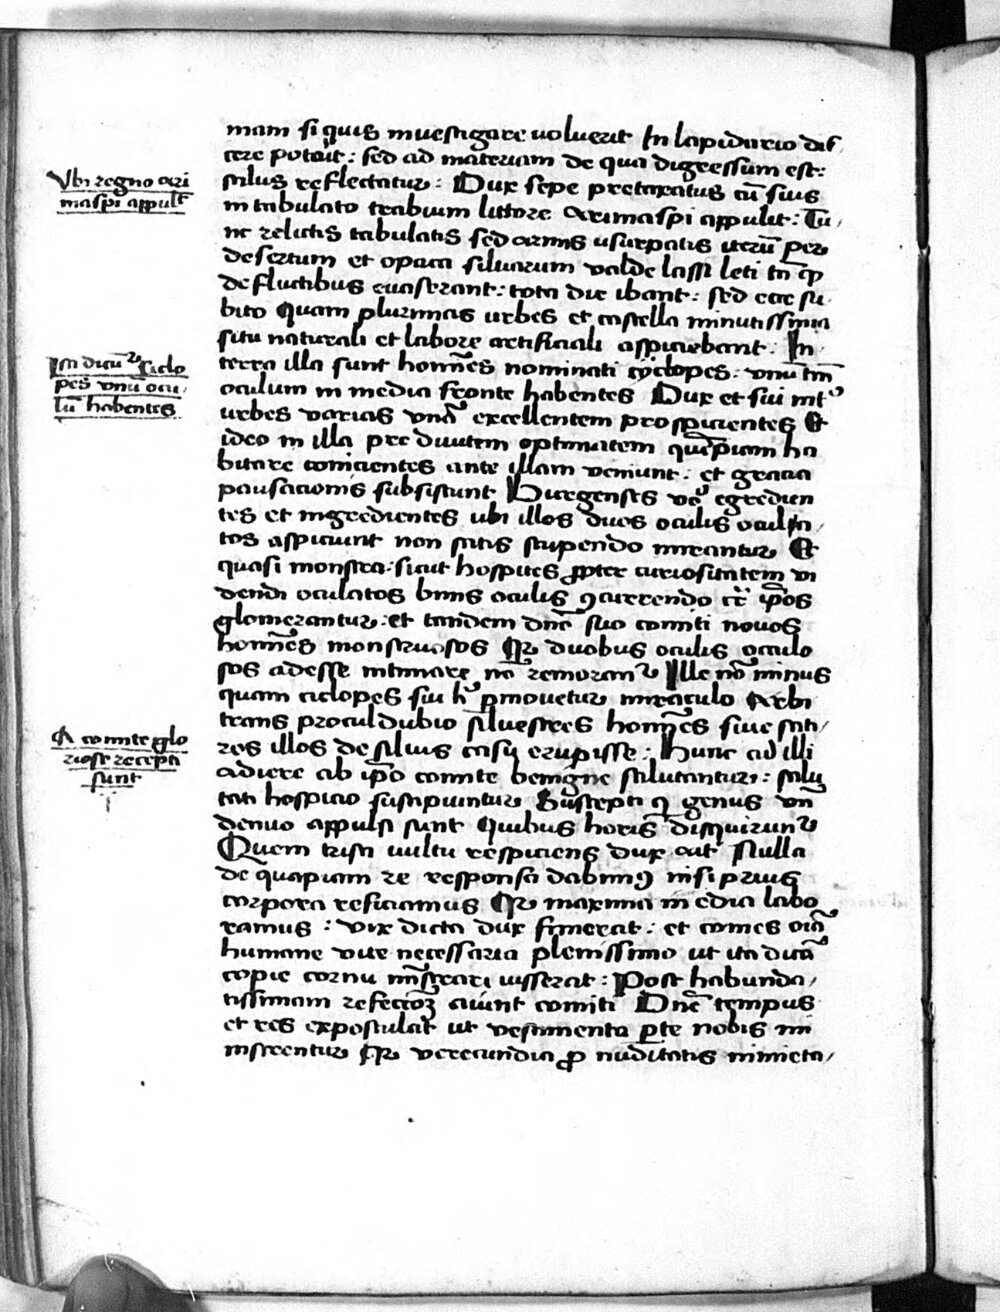 mam si quis inuestigare uoluerit In lapidario dis
cere poterit : sed ad materiam de qua digressum est :
stilus reflectatur : Dux sepe pretaxatus cū suis
in tabulato trabium littore Arimaspi appulit : Tu
nc relictis tabulatis sed armis usurpatis iterū per
desertum et opaca siluarum valde lassi leti tn̄ qꝫ
de fluctibus euaserant : tota die ibant : sed ecce su
bito Quam plurimas urbes et castella munitissima
situ naturali et labore artificiali aspiciebant : In
terra illa sunt homīes nominati cyclopes : vnū tm̄
oculum in media fronte habentes Dux et sui int᷒
urbes varias vnā excellentem prospicientes Et
ideo in illa pre diuitem optimatem quēpiam ha
bitare conicientes ante illam veniunt : et gracia
pausacionis subsistunt Burgenses vo᷒ egredien
tes et ingredientes ubi illos duos oculis oculīn
tos aspiciunt non satis stupendo mirantur Et
quasi monstra : sicut hospites ꝓpter curiositatem vi
dendi oculatos binis oculis ꝯcurrendo cc̄ ip̄os
glomerantur : et tandem dn̄o suo comiti nouos
homīes monstruosos Qꝛ duobus oculis occulo
sos adesse intimare nō remoran᷒ Ille nō minus
quam ciclopes sui h᷒ ꝑmouetur miraculo Arbi
trans procul dubio siluestres homīes siue sati
ros illos de siluis casu erupisse : Hunc ad illi
adiere ab ip̄o comite benigne salutantur : salu
tati hospicio suscipiuntur Suscepti qꝫ genus vn̄
denuo appulsi sunt Quibus horis disquirun᷒
Quem tristi uultu respiciens dux ait Nulla
de quapiam re responsa dabimꝰ nisi prius
corpora reficiamus Qꝛ maxima inedia labo
ramus : vix dicta dux finierat : et comes oīa
humane vite necessaria plenissimo ut ita dicā
copie cornu mīstrari iusserat : Post habunda
tissimam refeccōꝫ aiunt comiti Dn̄e tempus
et res expostulat ut vestimenta ꝑte nobis mi
nistrentur Qꝛ verecundia ꝓ nuditatis nimieta
Vbi regno ari
maspi appulit
Isti dicūt᷒ Ciclo
pes vnū ocu
lū habentes
A comite glo
riose recepti
sunt